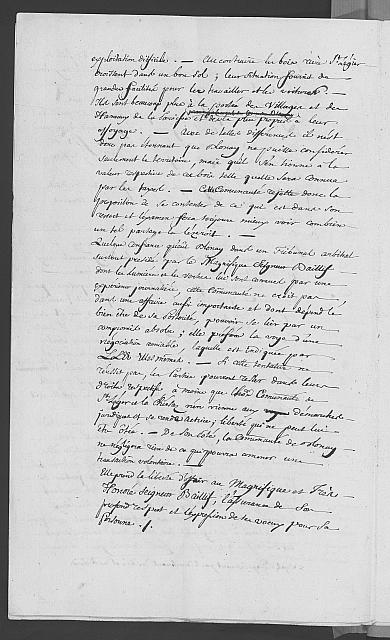 exploitation difficile. — Au contraire les bois rière St. Légier
croissent dans un bon sol ; leur situation fournit de
grandes facilités pour les travailler et les voiturer —
Ils sont beaucoup plus à la portée des Villages et des
Hameaux de la Paroisse et plus propres à leur
affoyage. — Avec de telles différences il n'est
donc pas étonnant que Blonay ne puisse considérer
seulement le territoire, mais qu'il s'en tienne à la
valeur respective de ces bois telle qu'elle sera connue
par les taxes. — Cette Communauté rejette donc la
proposition de se contenter de ce qui est dans son
ressort et l'examen fera toujours mieux voir combien
un tel partage la lèzeroit. —
Quelque confiance qu'ait Blonay dans un Tribunal arbitral
surtout présidé par le Magnifique Seigneur Baillif
dont les lumières et les vertus lui sont connues par une
expérience journalière, cette Communauté ne croit pas
dans une affaire aussi importante et dont dépend le
bien être de ses Bourgeois, pouvoir se lier par un
compromis absolu ; elle préfère la voye d'une
négociation amiable, laquelle est indiquée par
LLEE mesmes. — Si cette tentative ne
réussit pas, les Parties pourront rester dans leurs
droits respectifs, à moins que la Communauté de
St. Légier et la Chiésaz n'en vienne aux démarches
juridiques et se rende actrice, liberté qui ne peut lui
être ôtée. — De son côté, la Communauté de Blonay
ne négligera rien de ce qui pourra amener une
transaction volontaire. —
Elle prend la liberté d'offrir au Magnifique et Très-
Honoré Seigneur Baillif, l'assurance de son
profond respect et l'expression de ses voeux pour sa
Personne ./.